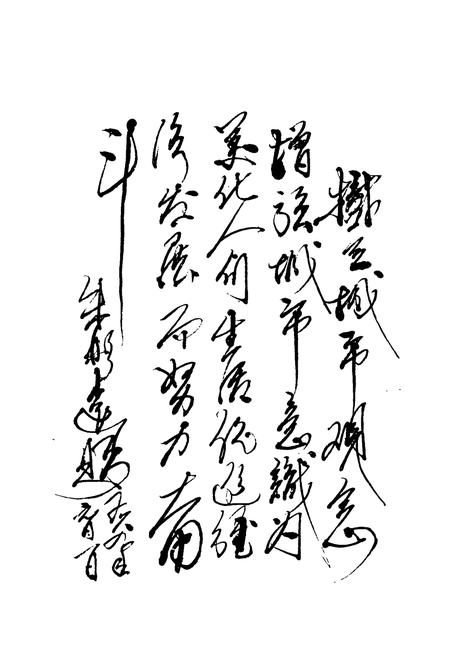 樹立城市观念
增强城市意識为
美化人们生活促进經
济发展而努力奋
斗
朱